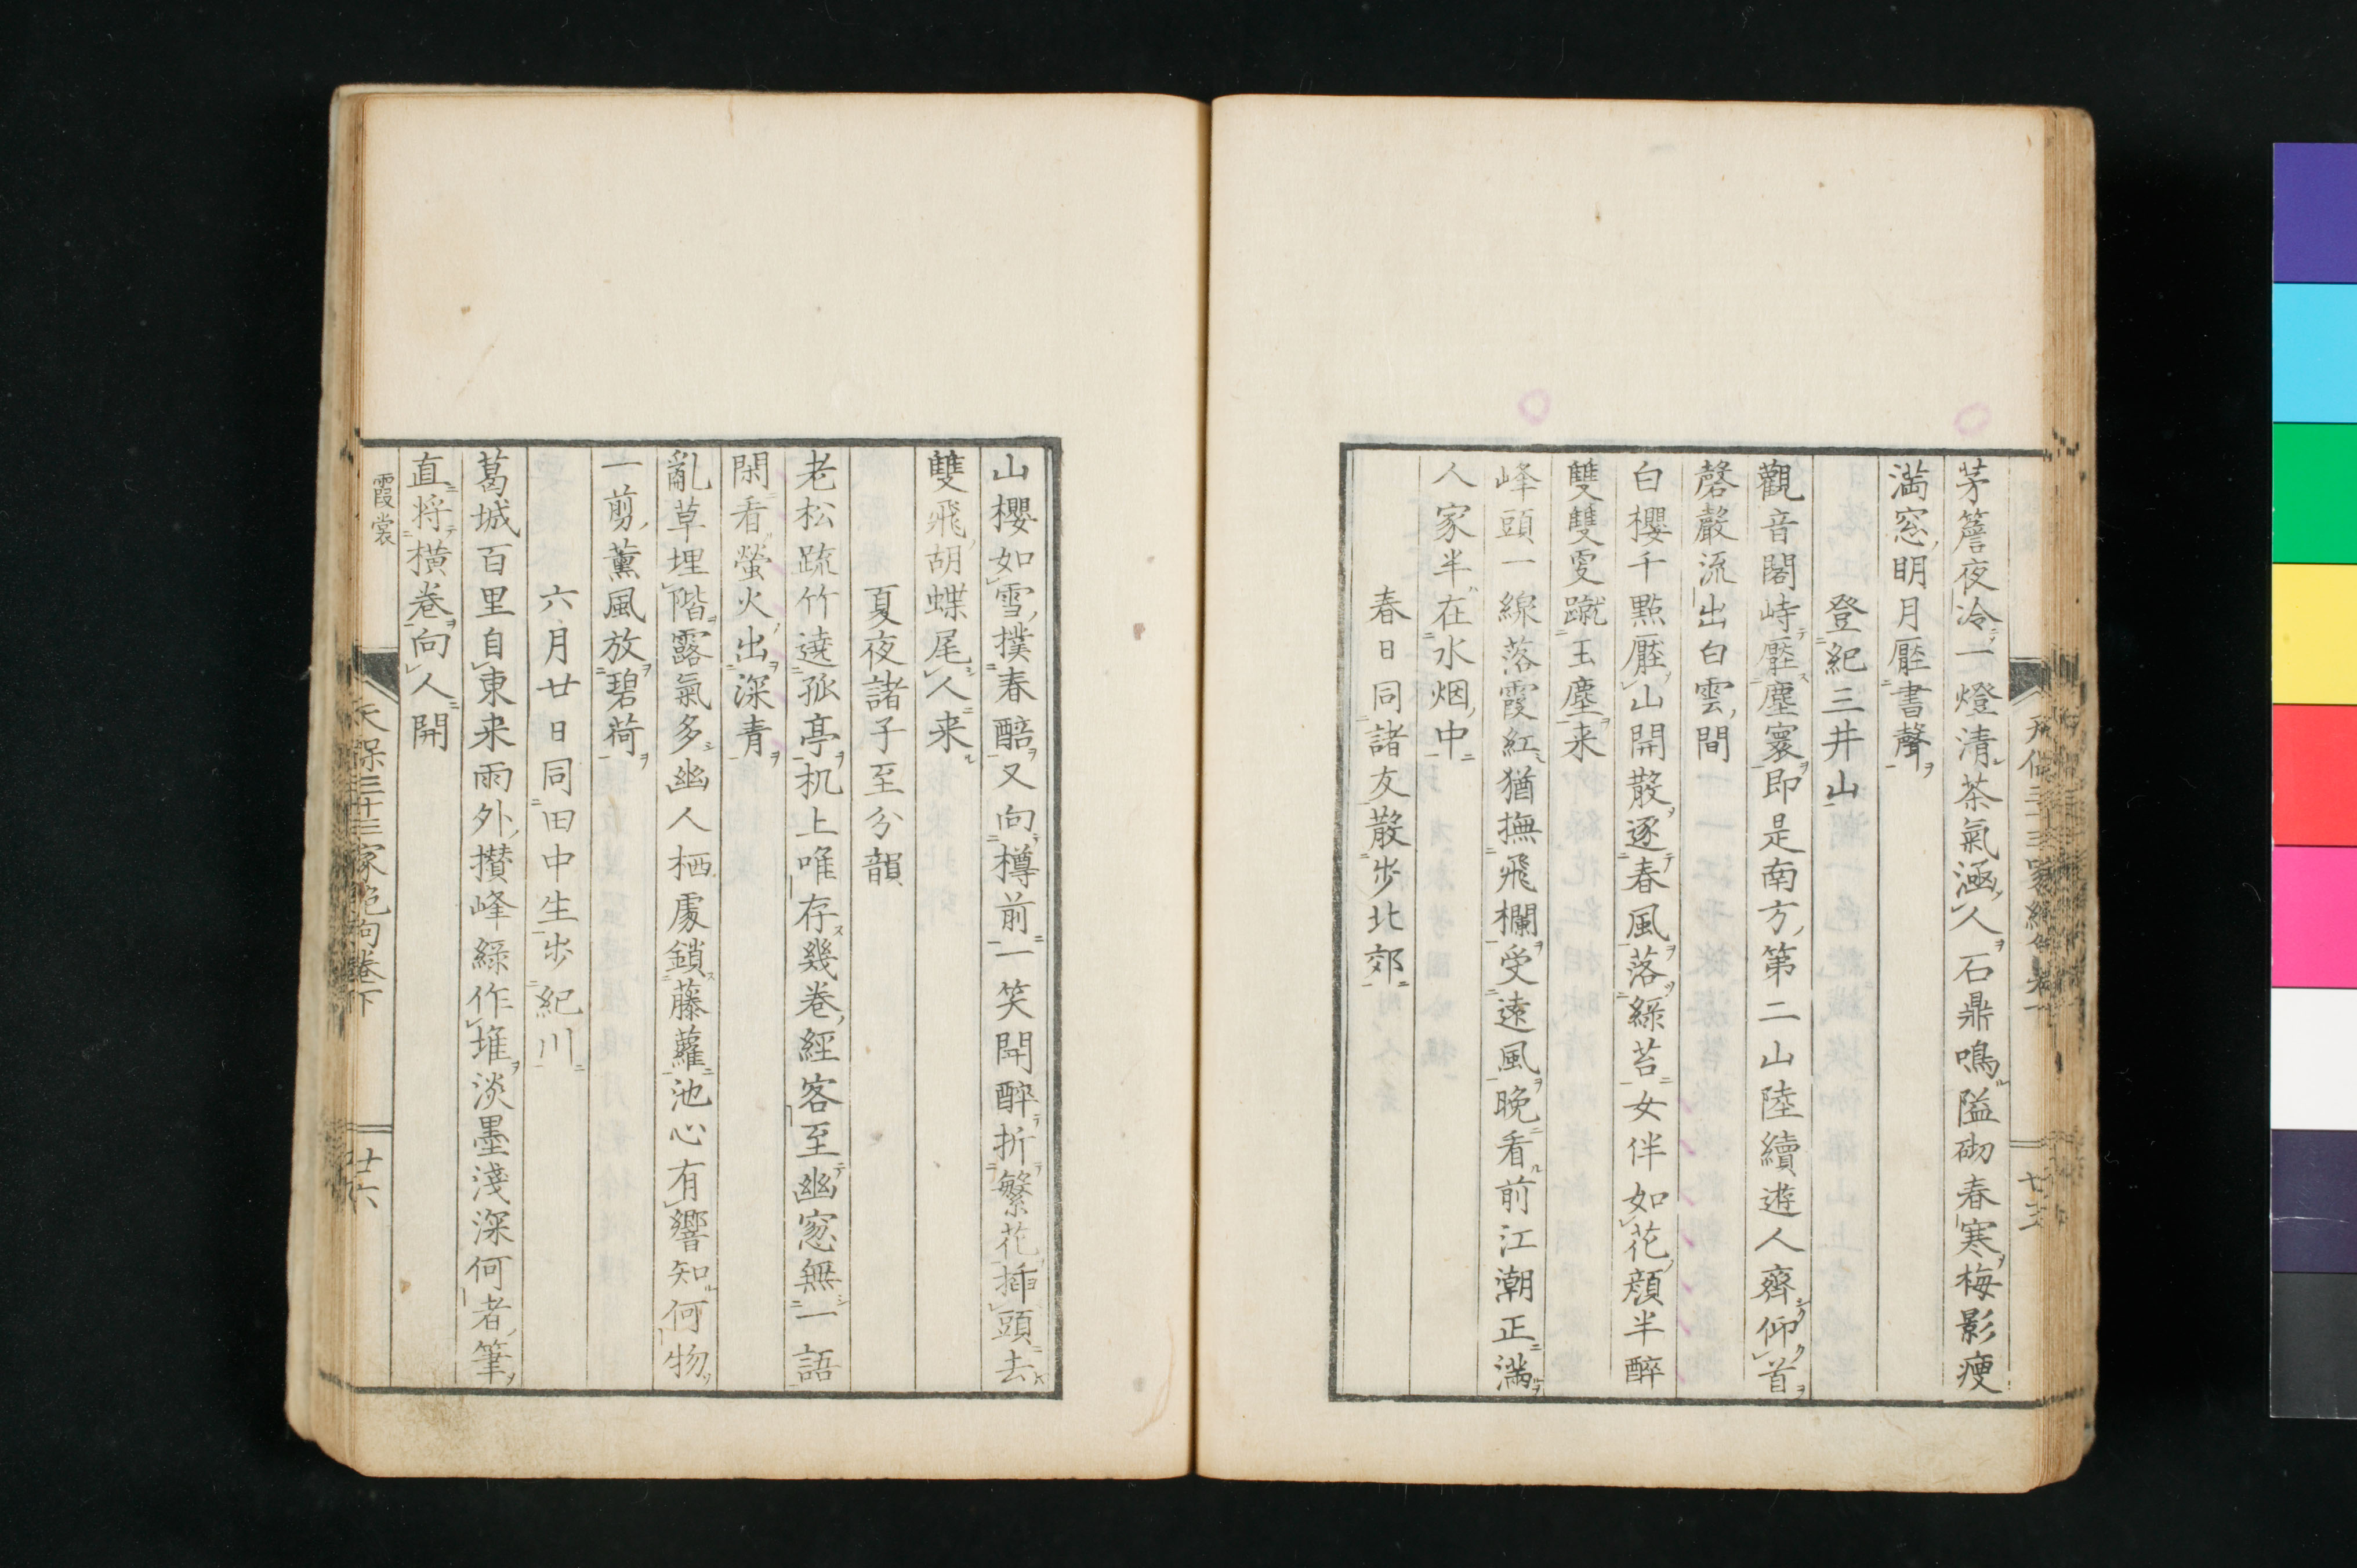 茅簷夜冷一燈清茶氣涵人石鼎鳴隘砌春寒梅影瘦
滿窓明月壓書聲
登紀三井山
觀音閣峙壓塵寰即是南方第二山陸續遊人齊仰首
磬嚴流出白雲間
白櫻千點壓山開散逐春風落綠苔女伴如花顔半醉
雙雙蹴玉塵来
峰頭一線落霞紅猶撫飛欄受遠風晩看前江潮正滿
人家半在水烟中
春日同諸友散步北郊
山櫻如雪撲春醅又向樽前一笑開醉折繁花插頭去
雙飛胡蝶尾人来
夏夜諸子至分韻
老松疏竹遶孤亭机上唯存幾卷經客至幽窓無一語
閑看螢火出深青
亂草埋階露氣多幽人栖處鎖藤蘿池心有響知何物
一剪薫風放碧荷
六月廿日同田中生步紀川
葛城百里自東来雨外攢峰綠作堆淡墨淺深何者筆
直将横卷向人開
霞裳
天保三十三家絶句卷下
廿六